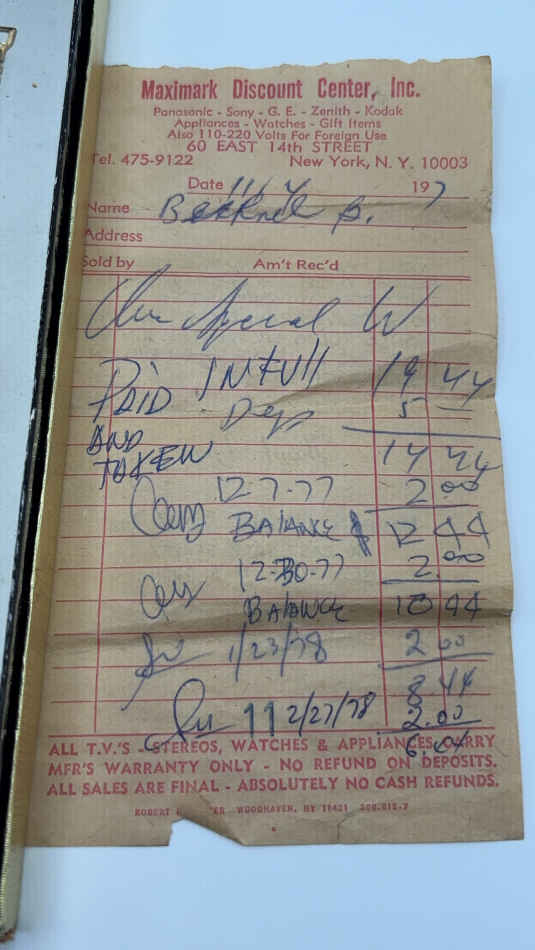 Maximark Discount Center, Inc.
Panasonic - Sony - G. E. - Zenith - Kodak
Appliances - Watches - Gift Items
Also 110-220 Volts For Foreign Use
60 EAST 14th STREET
Tel. 475-9122 New York, N. Y. 10003
Date 11/4 197
Name B.
Address
Sold by Am't Rec'd
Special W
PAID IN FULL 19 44
Dep 5 —
AND
TAKEN 14 44
12-7-77 2.00
BALANCE $ 12 44
12-30-77 2.00
BALANCE 10 44
1/23/78 2 00
8.44
2/27/78 2.00
6.44
ALL T.V.'S - STEREOS, WATCHES & APPLIANCES CARRY
MFR'S WARRANTY ONLY - NO REFUND ON DEPOSITS.
ALL SALES ARE FINAL - ABSOLUTELY NO CASH REFUNDS.
ROBERT WOODHAVEN, NY 11421